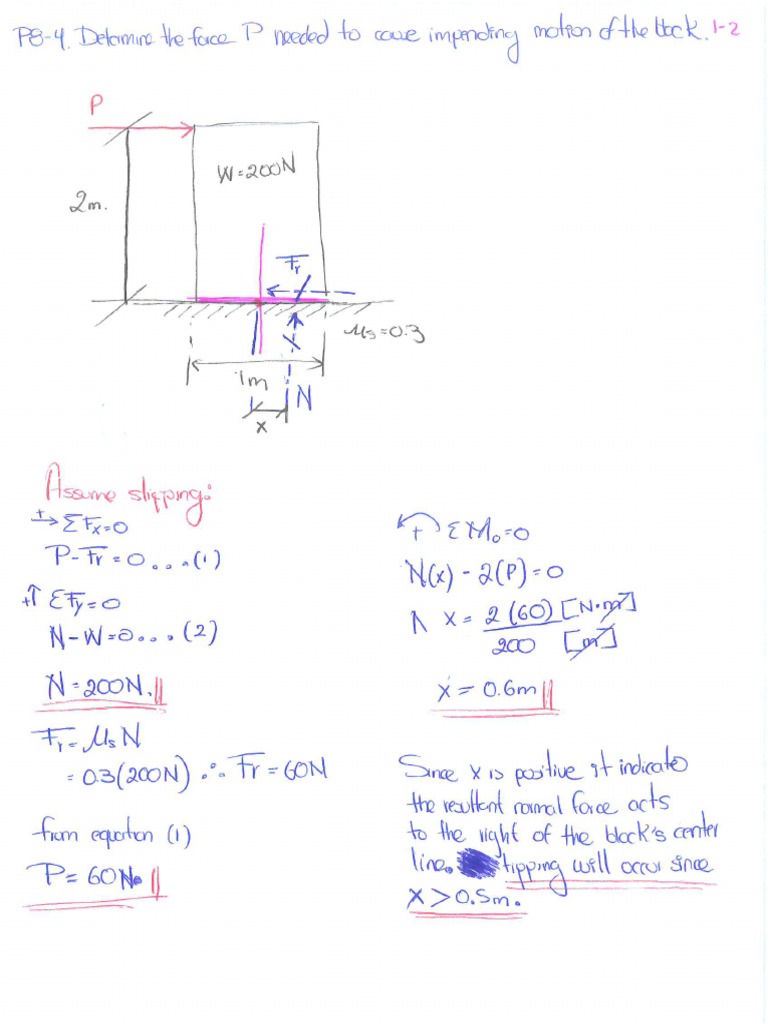 P8-4. Determine the force P needed to cause impending motion of the block. 1-2
P
W=200N
2m.
Fr
μs=0.3
1m
N
x
Assume slipping:
+→ ΣFx=0
P-Fr=0...(1)
+↑ ΣFy=0
N-W=0...(2)
N=200N.
Fr=μsN
=0.3(200N) ∴ Fr=60N
from equation (1)
P=60N.
+ ΣMo=0
N(x)-2(P)=0
∧ x= 2(60) [N·m²]
200 [m]
x=0.6m
Since x is positive it indicate
the resultant normal force acts
to the right of the block's center
line. tipping will occur since
x>0.5m.